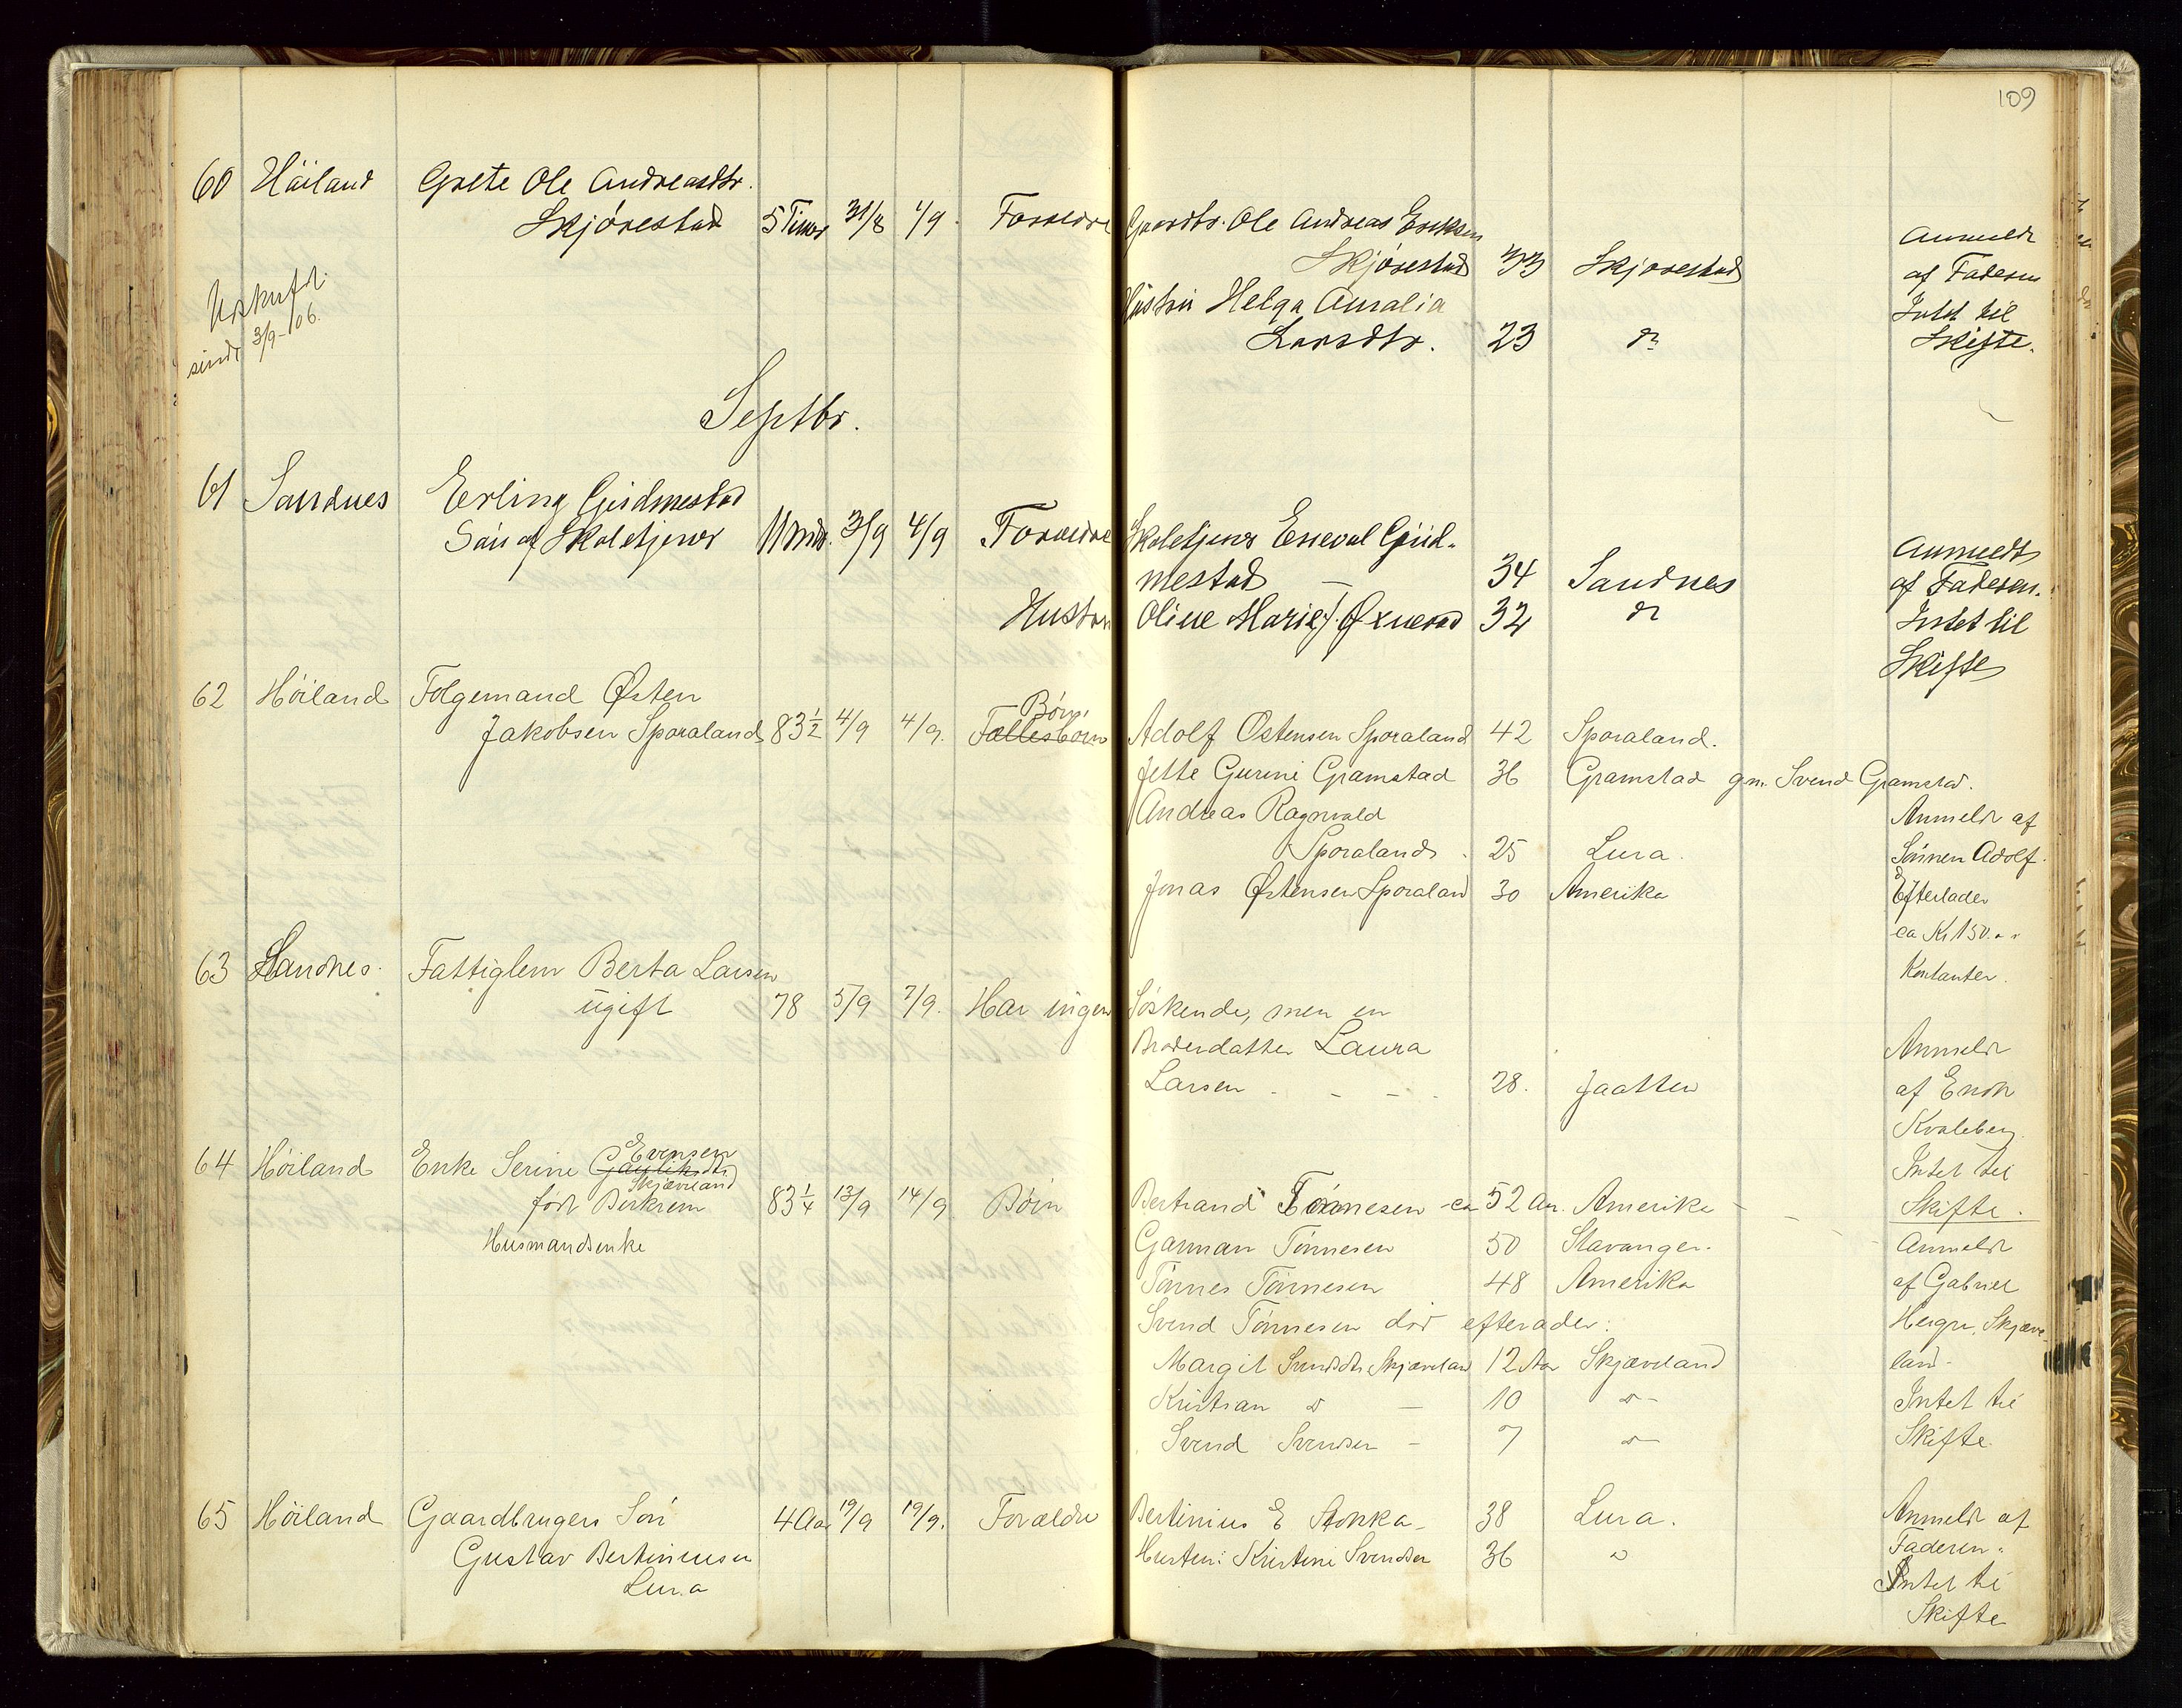 109
60 Höiland Grete Ole Andreasdtr.
Skjörestad 5 Timer 31/8 1/9 Forældre Gaardbr. Ole Andreas Eriksen
Skjörestad 33 Skjörestad
Hustru Helga Amalia
Larsdtr. 23 do
Anmeldt
af Faderen
Intet til
Skifte.
Udskrift
sendt 3/9-06.
Septbr.
61 Sandnes Erling Gudmestad
Sön af Skoletjener 11 Mndr. 3/9 4/9 Forældre Skoletjener Enevald Gud-
mestad 34 Sandnes
Hustru Oline Marie f. Øxnevad 32 do
Anmeldt
af Faderen.
Intet til
Skifte
62 Höiland Folgemand Østen
Jakobsen Sporaland 83½ 4/9 4/9. Fællesbörn Börn. Adolf Østensen Sporaland 42 Sporaland.
Jette Gurine Gramstad 36 Gramstad gm. Svend Gramstad.
Andreas Ragnvald
Sporaland 25 Lura.
Jonas Østensen Sporaland 30 Amerika
Anmeldt af
Sönnen Adolf.
Efterlader
ca Kr 150.
Kontanter.
63 Sandnes. Fattiglem Berta Larsen
ugift 78 5/9 7/9. Har ingen Söskende, men en
Broderdatter Laura
Larsen - - - 28. Jaatten
Anmeldt
af Enok
Kvaleberg.
Intet til
Skifte.
64 Höiland Enke Serine Gauliksdtr Evensen
Skjæveland
född Birkrem 83¼ 13/9 14/9 Börn Bertrand Tönnesen ca 52 Aar. Amerika
Husmandsenke
Garman Tönnesen 50 Stavanger.
Tönnes Tönnesen 48 Amerika
Svend Tönnesen död efterlader:
Margit Svendsdtr Skjæveland 12 Aar Skjæveland
Kristian do - 10 do -
Svend Svendsen - 7 do -
Anmeldt
af Gabriel
Skjæve-
land -
Intet til
Skifte.
65 Höiland Gaardbrugers Sön
Gustav Bertiniusen
Lura 4 Aar 19/9 19/9. Forældre Bertinius E Stokka - 38 Lura.
Hustru: Kristine Svendsen 36 do
Anmeldt af
Faderen.
Intet til
Skifte